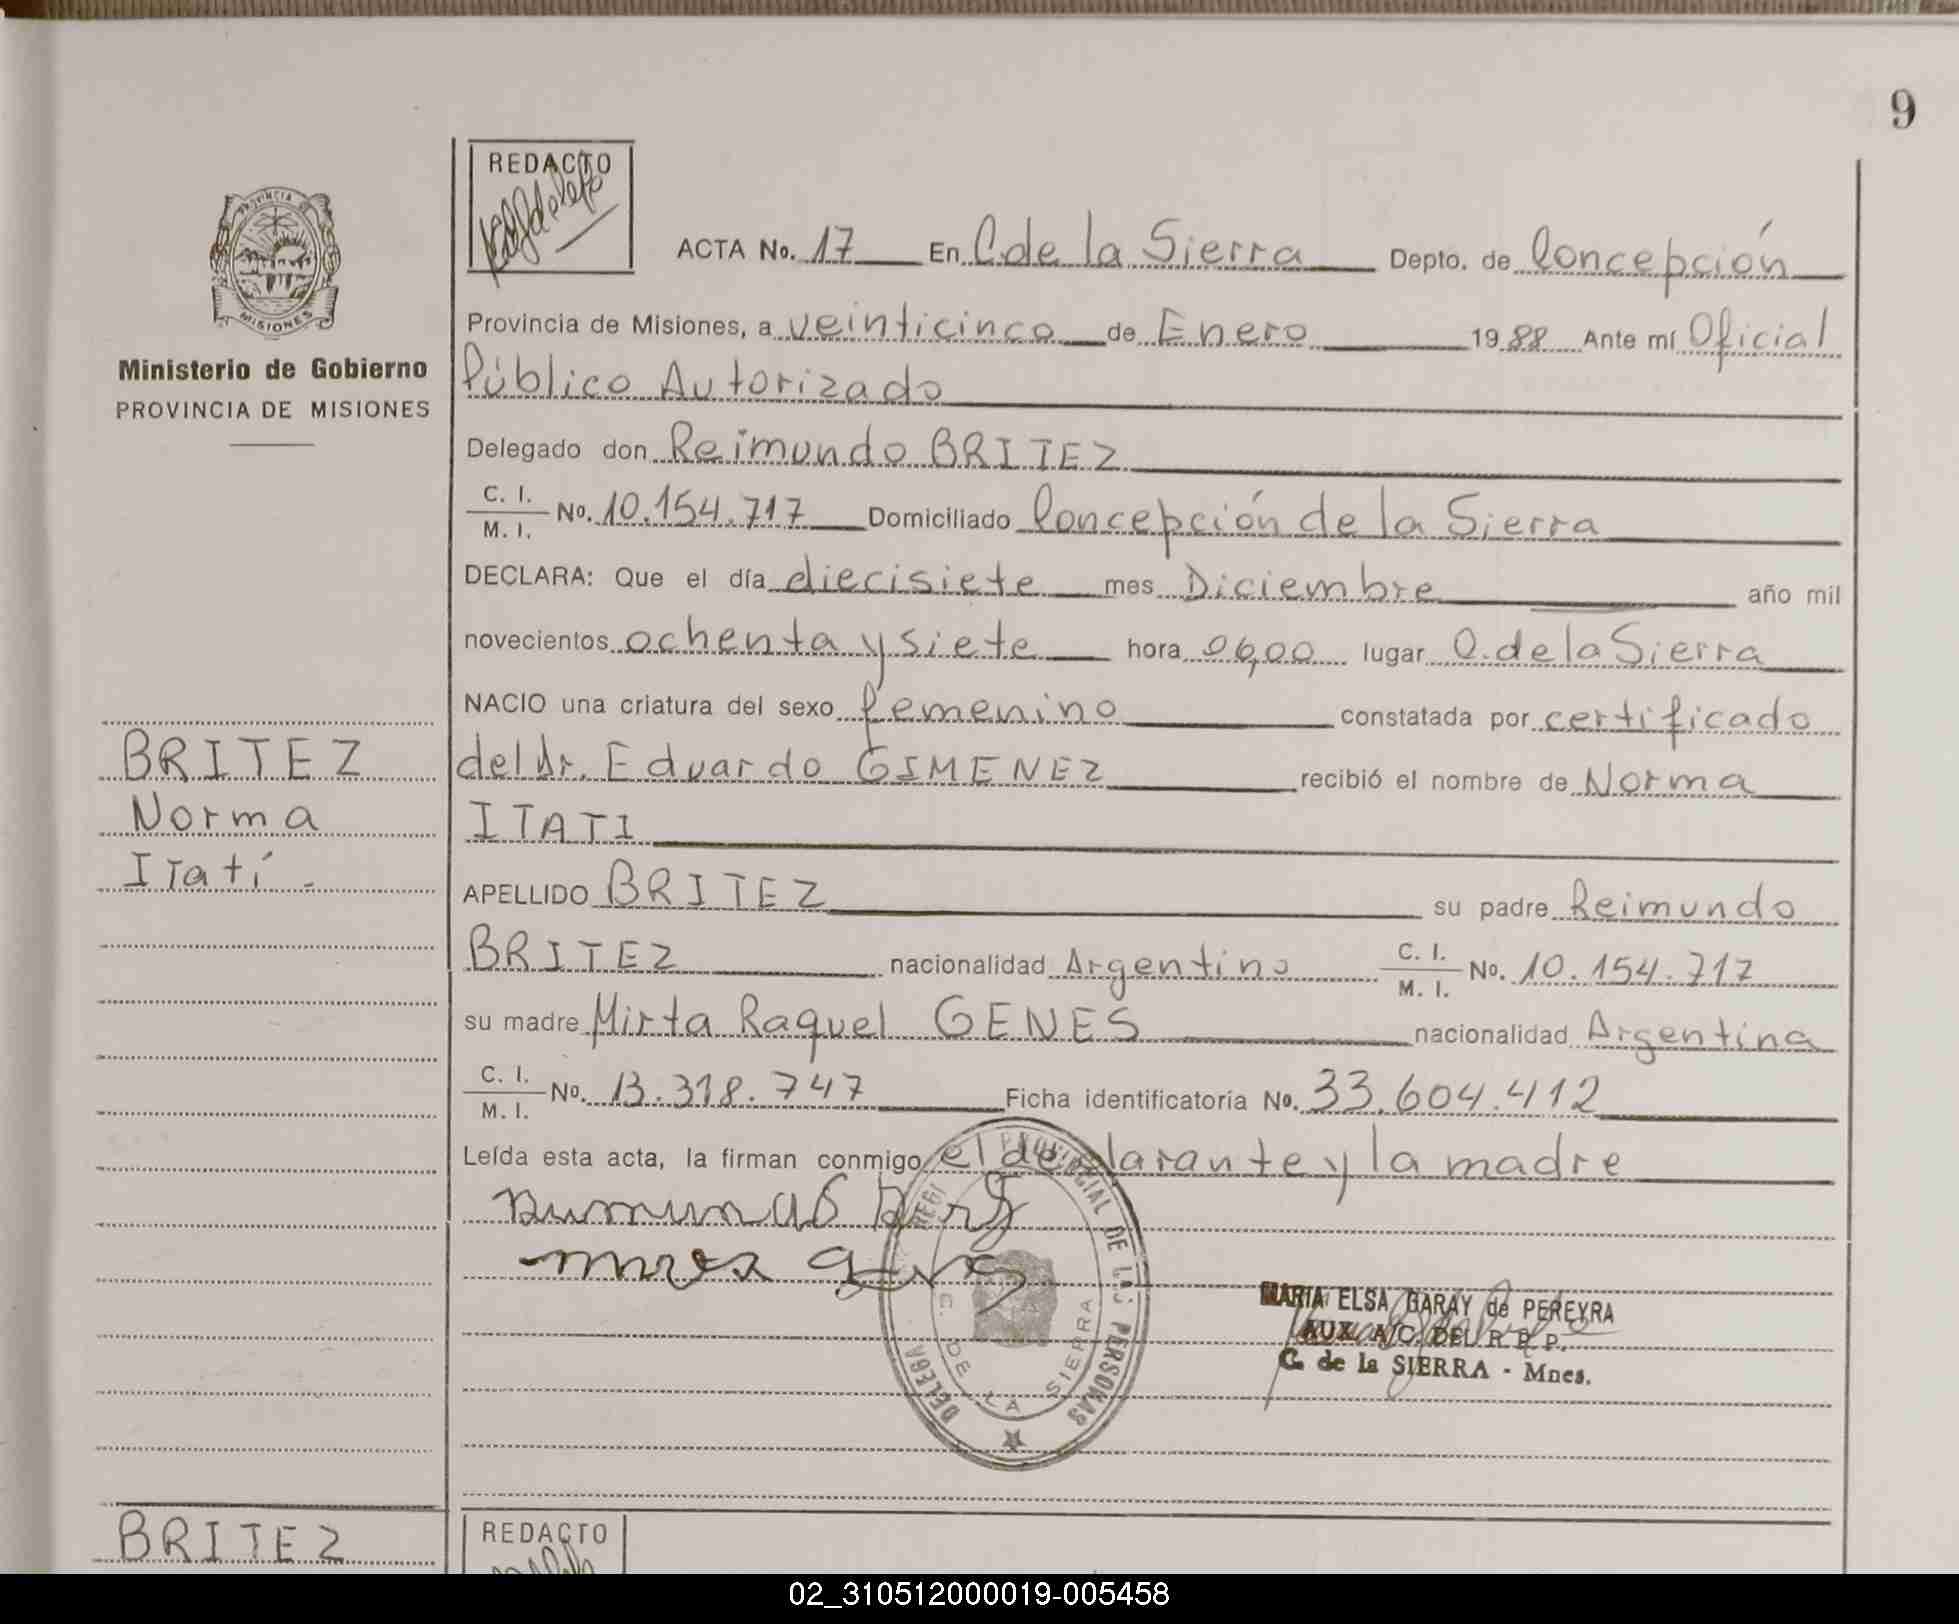 9
REDACTO
PROVINCIA DE
MISIONES
Ministerio de Gobierno
PROVINCIA DE MISIONES
ACTA No. 17 En C. de la Sierra Depto. de Concepción
Provincia de Misiones, a veinticinco de Enero 1988 Ante mí Oficial
Público Autorizado
Delegado don Reimundo BRITEZ
C. I.
M. I. No. 10.154.717 Domiciliado Concepción de la Sierra
DECLARA: Que el día diecisiete mes Diciembre año mil
novecientos ochenta y siete hora 06,00 lugar C. de la Sierra
NACIO una criatura del sexo femenino constatada por certificado
del Dr. Eduardo GIMENEZ recibió el nombre de Norma
ITATI
APELLIDO BRITEZ su padre Reimundo
BRITEZ nacionalidad Argentino C. I. M. I. No. 10.154.717
su madre Mirta Raquel GENES nacionalidad Argentina
C. I.
M. I. No. 13.318.747 Ficha identificatoria No. 33.604.412
Leída esta acta, la firman conmigo el declarante y la madre
BRITEZ
Norma
Itatí.-
PROVINCIAL DE LAS PERSONAS
C. DE LA SIERRA
MARIA ELSA GARAY de PEREYRA
AUX. A/C. DEL R. P. P.
C. de la SIERRA - Mnes.
BRITEZ
REDACTO
02_310512000019-005458